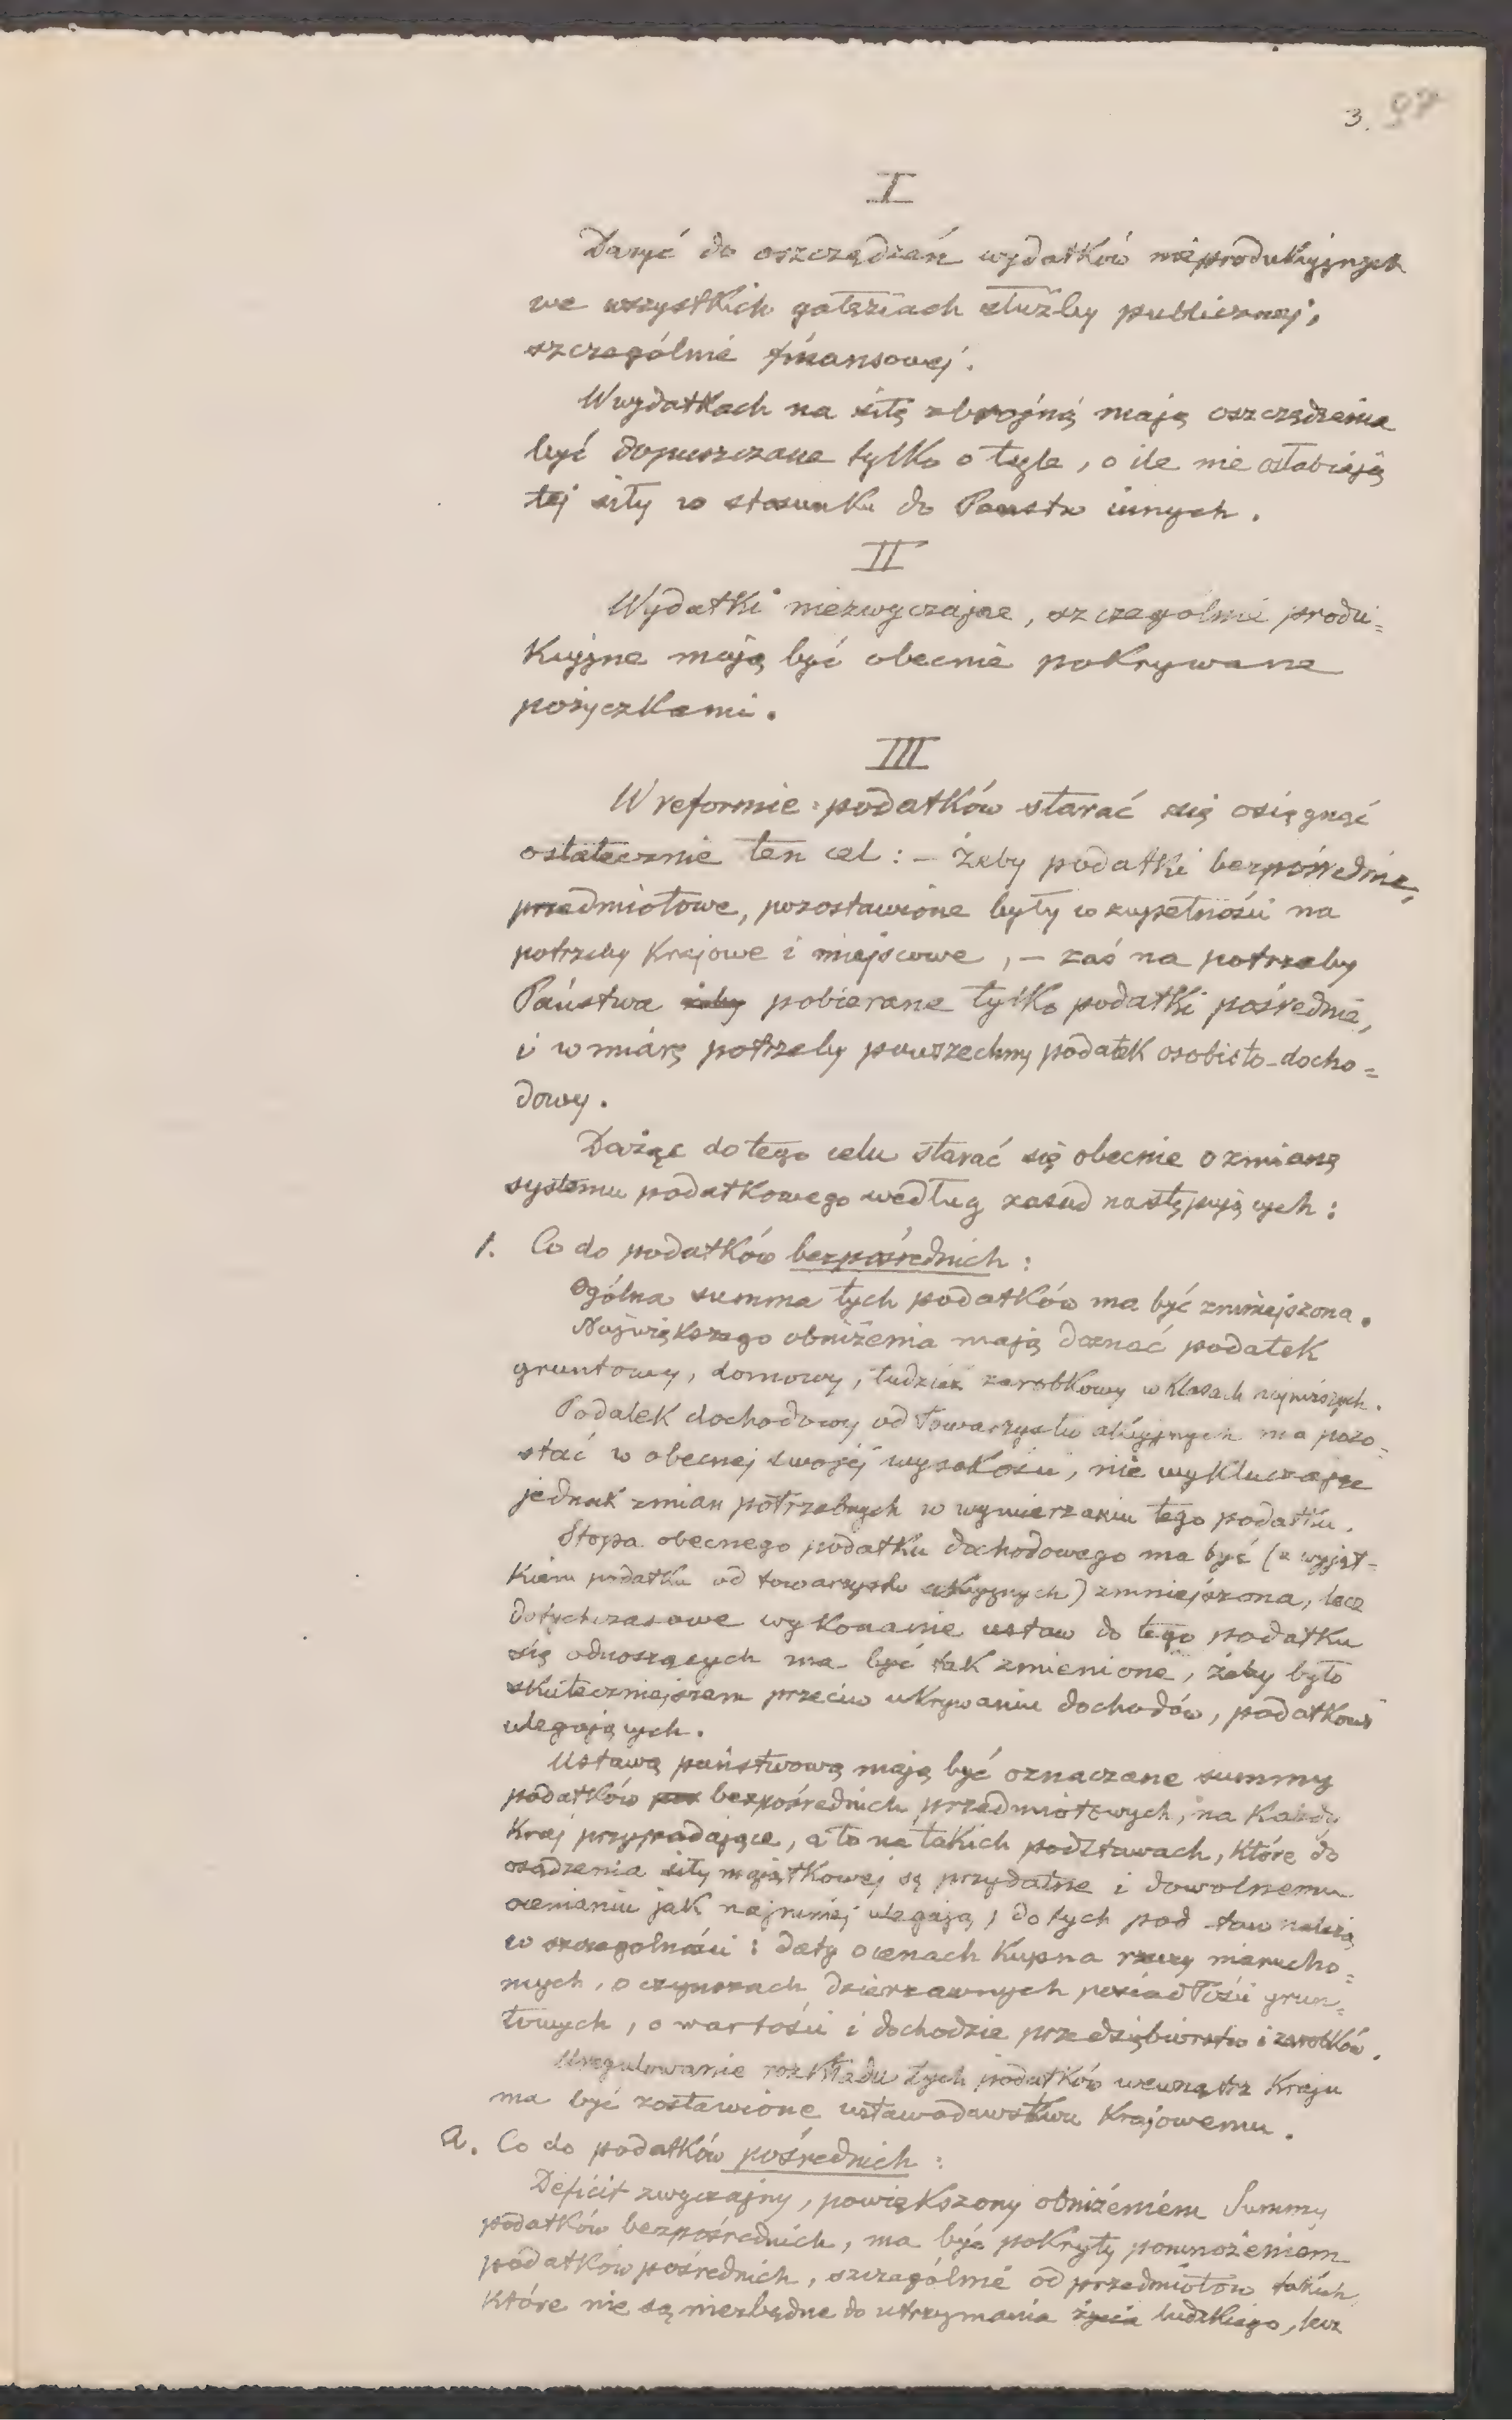 3. 97
I
Dążyć do oszczędzań wydatków nieprodukcyjnych
we wszystkich gałęziach służby publicznej,
szczególnie finansowej.
W wydatkach na siłę zbrojną mają oszczędzenia
być dopuszczane tylko o tyle, o ile nie osłabiają
tej siły w stosunku do Państw innych.
II
Wydatki niezwyczajne, szczególnie produ=
kcyjne mają być obecnie pokrywane
pożyczkami.
III
W reformie podatków starać się osięgnąć
ostatecznie ten cel: – żeby podatki bezpośrednie,
przedmiotowe, pozostawione były w zupełności na
potrzeby krajowe i miejscowe, – zaś na potrzeby
Państwa żeby pobierane tylko podatki pośrednie,
i w miarę potrzeby powszechny podatek osobisto-docho=
dowy.
Dążąc do tego celu starać się obecnie o zmianę
systemu podatkowego według zasad następujących:
1. Co do podatków bezpośrednich:
Ogólna summa tych podatków ma być zmniejszona.
Największego obniżenia mają doznać podatek
gruntowy, domowy, tudzież zarobkowy w klasach najniższych.
Podatek dochodowy od Towarzystw akcyjnych ma pozo=
stać w obecnej swojej wysokości, nie wykluczając
jednak zmian potrzebnych w wymierzaniu tego podatku.
Stopa obecnego podatku dochodowego ma być (z wyjąt-
kiem podatku od towarzystw akcyjnych) zmniejszona, lecz
dotychczasowe wykonanie ustaw do tego podatku
się odnoszących ma być tak zmienione, żeby było
skuteczniejszem przeciw ukrywaniu dochodów, podatkowi
ulegających.
Ustawą państwową mają być oznaczane summy
podatków bezpośrednich przedmiotowych, na każdy
kraj przypadające, a to na takich podstawach, które do
osądzenia siły majątkowej są przydatne i dowolnemu
ocenianiu jak najmniej ulegają; do tych podstaw należą
w szczególności: daty o cenach kupna rzeczy nierucho=
mych, o czynszach dzierżawnych posiadłości grun=
towych, o wartości i dochodzie przedsiębiorstw i zarobków.
Uregulowanie rozkładu tych podatków wewnątrz kraju
ma być zostawione ustawodawstwu krajowemu.
2. Co do podatków pośrednich:
Deficit zwyczajny, powiększony obniżeniem Summy
podatków bezpośrednich, ma być pokryty pomnożeniem
podatków pośrednich, szczególnie od przedmiotów takich
które nie są niezbędne do utrzymania życia ludzkiego, lecz